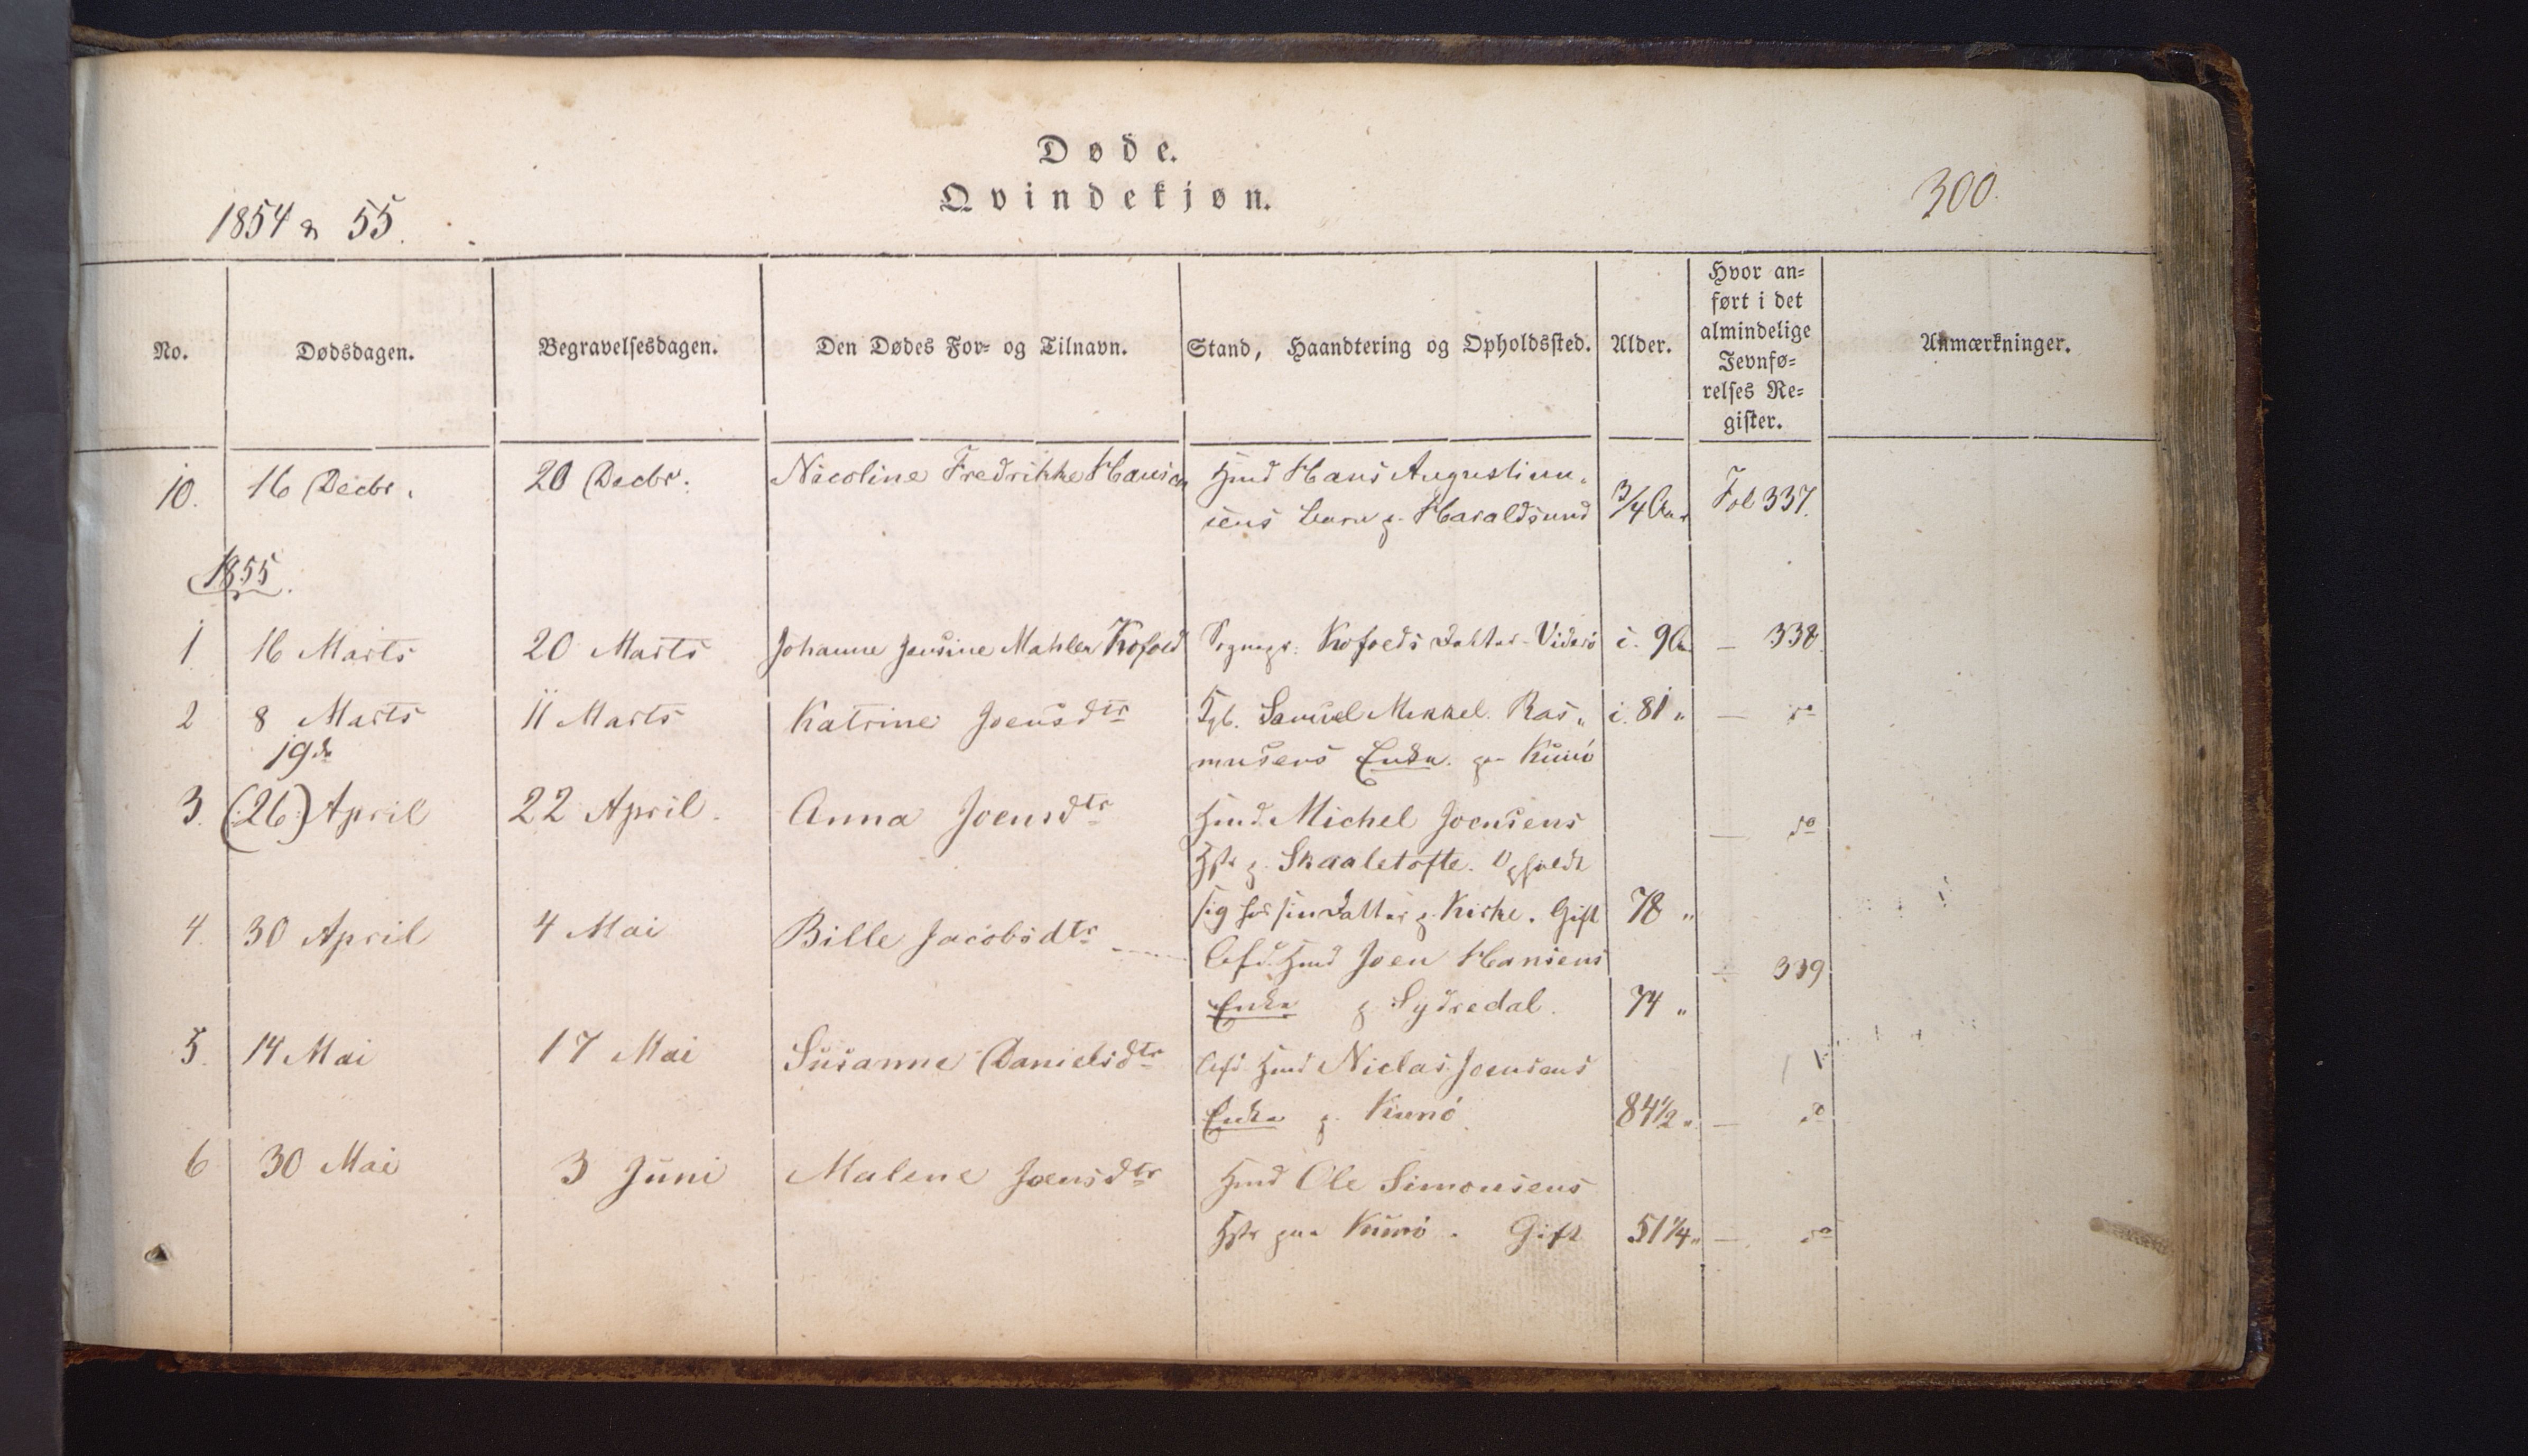 Døde.
Qvindekjøn.
1854 & 55.
300.
No.
Dødsdagen.
Begravelsesdagen.
Den Dødes For- og Tilnavn.
Stand, Haandtering og Opholdssted.
Alder.
Hvor an-
ført i det
almindelige
Jevnfø-
relses Re-
gister.
Anmærkninger.
10. 16 Decbr. 20 Decbr. Nicoline Fredrikke Hansen Hmd Hans Augustinu„
sens barn p. Haraldsund 3/4 Aar Fol 337.
1855.
1 16 Marts 20 Marts Johanne Jensine Mahler Kofoed Sognepr. Kofoeds Datter Viderø i. 9 A. — 338.
2 8 Marts 11 Marts Katrine Joensdtr Samuel Mikkel Ras„ i. 81 „ — do
musens Enke. paa Kunö
19de
3. (26) April 22 April. Anna Joensdtr Hmd. Michel Joensens — do
Hstr p. Skaaletofte. Opholdt
sig hos sin Datter p. Kirke. Gift 78 „
4. 30 April 4 Mai Bille Jacobsdtr Afd. Hmd Joen Hansens — 339
Enke p. Sydredal. 74 „
5. 14 Mai 17 Mai Susanne Danielsdtr Afd. Hmd Niclas Joensens
Enke p. Kunö. 84 1/2 „ — do
6 30 Mai 3 Juni Malene Joensdtr Hmd Ole Simonsens
Hstr paa Kunö. Gift 51 1/4 „ — do